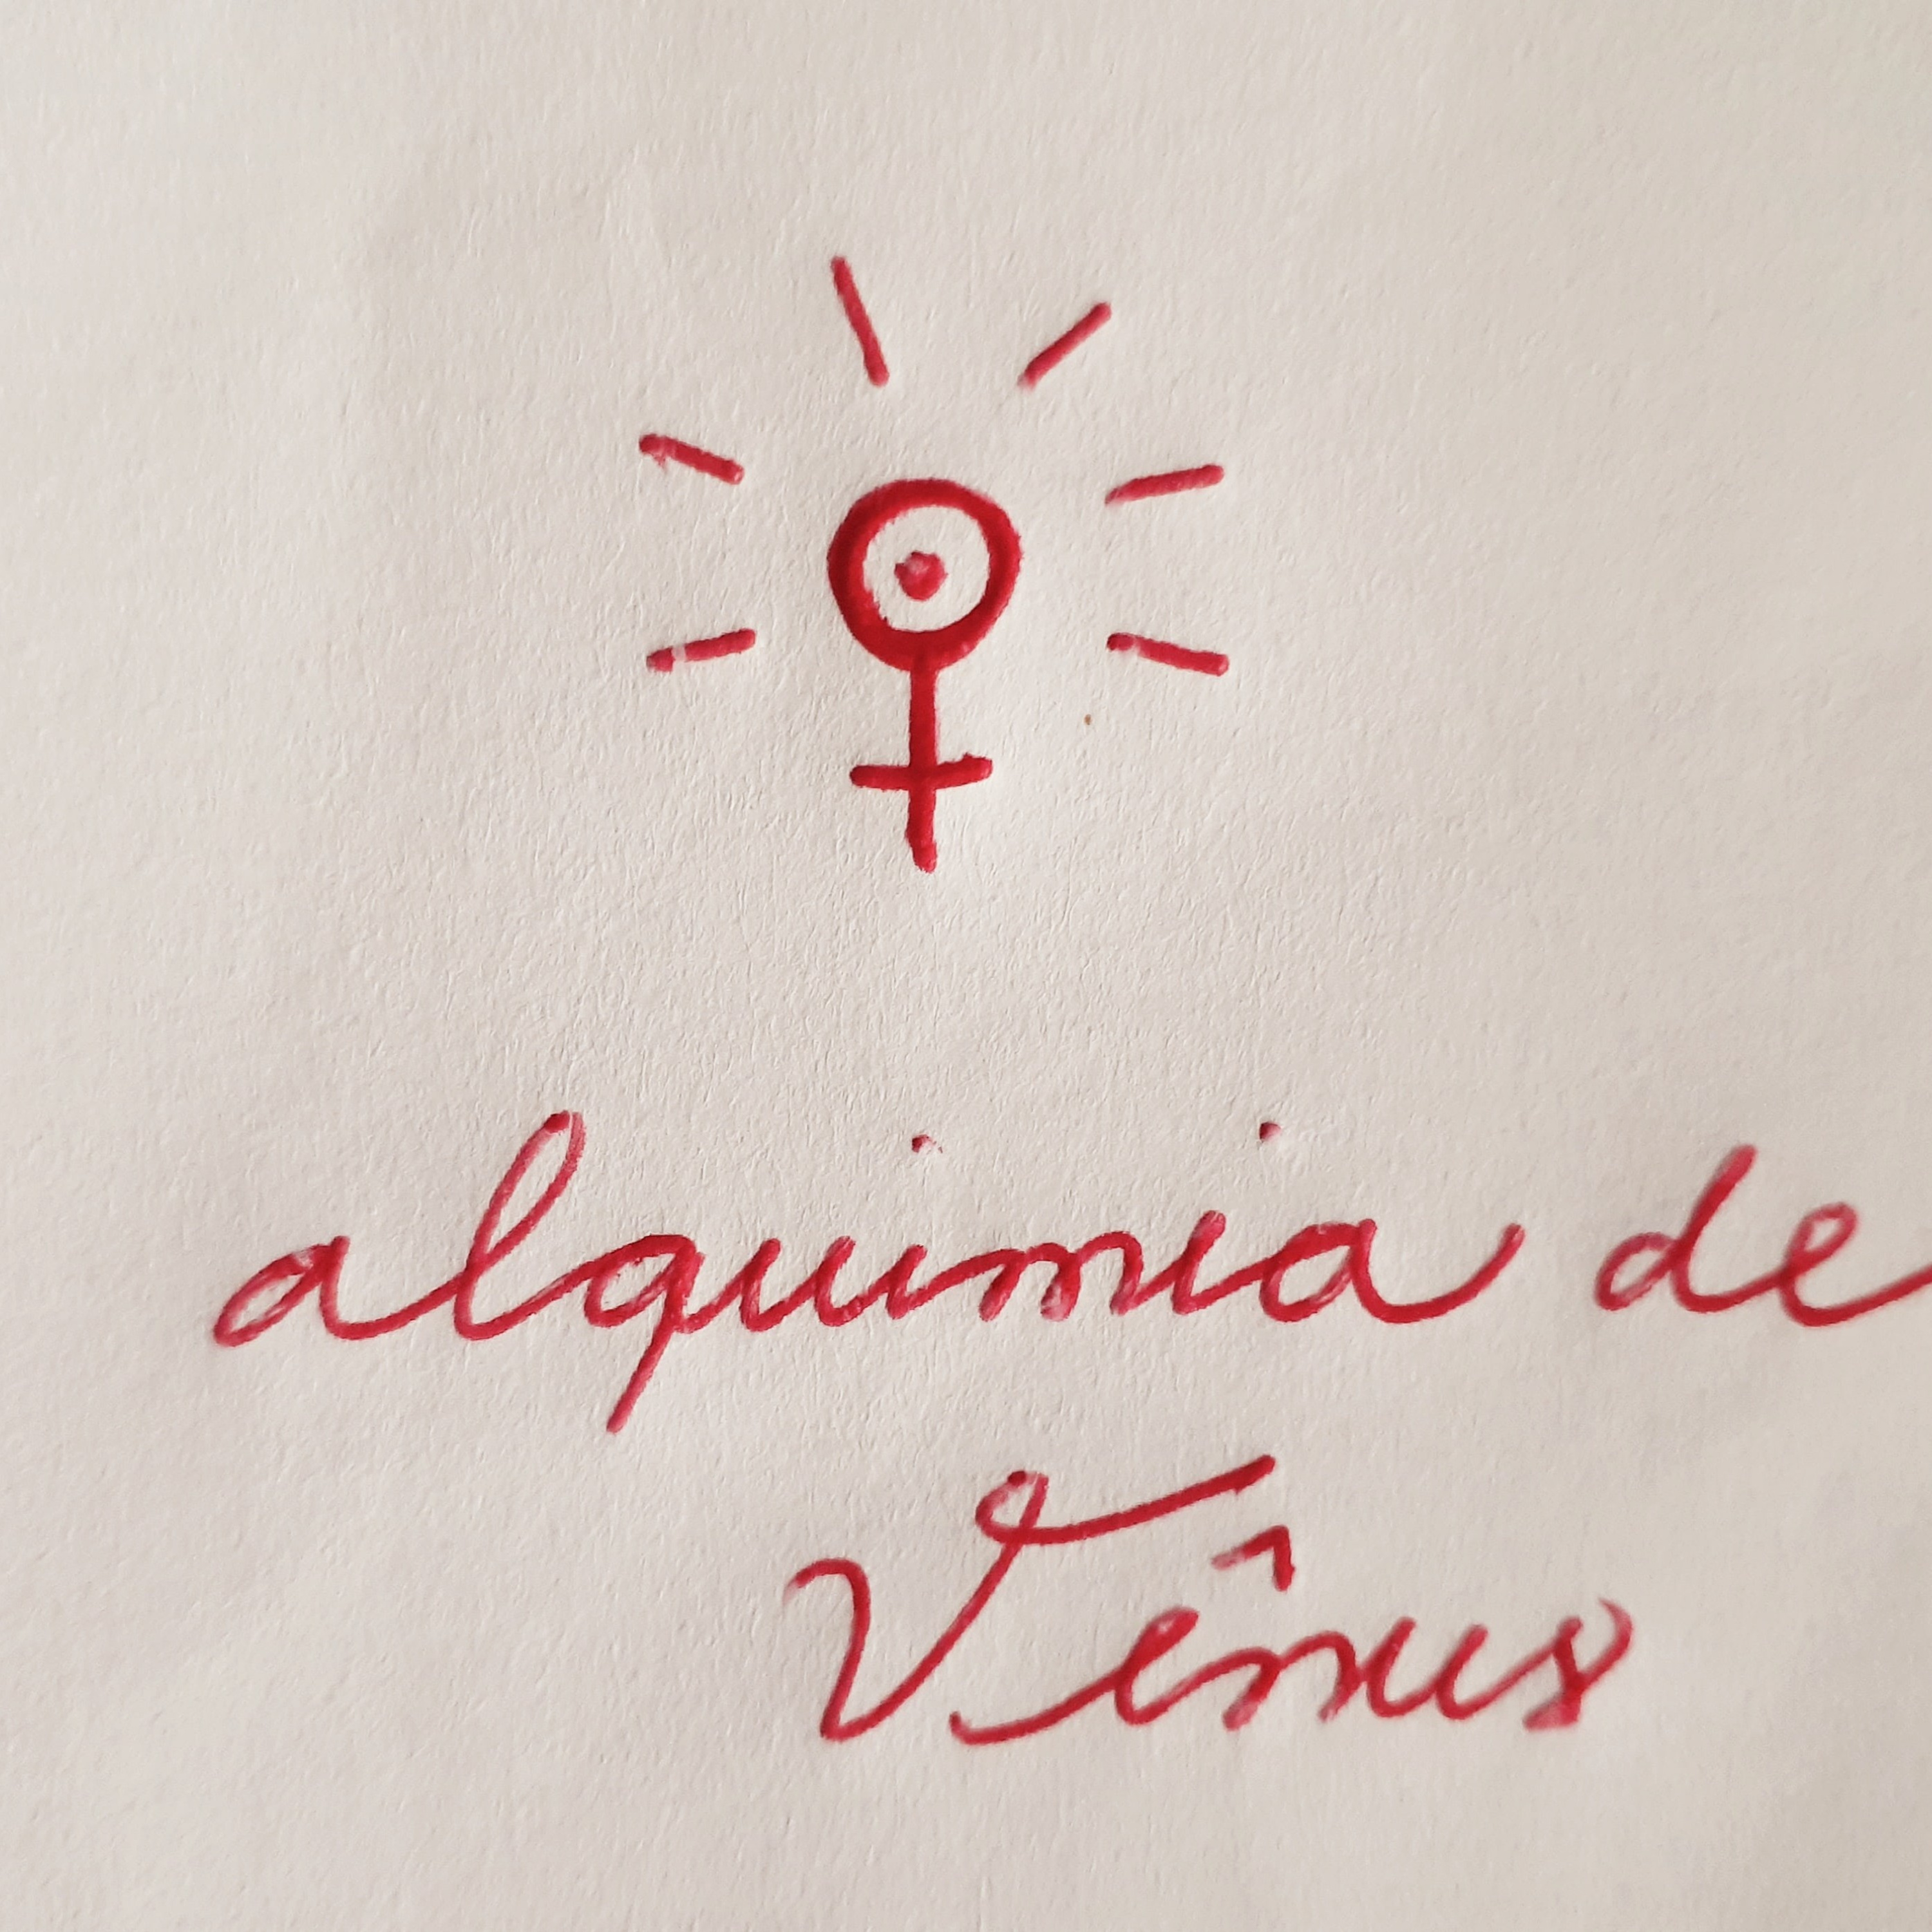 alquimia de
Vênus